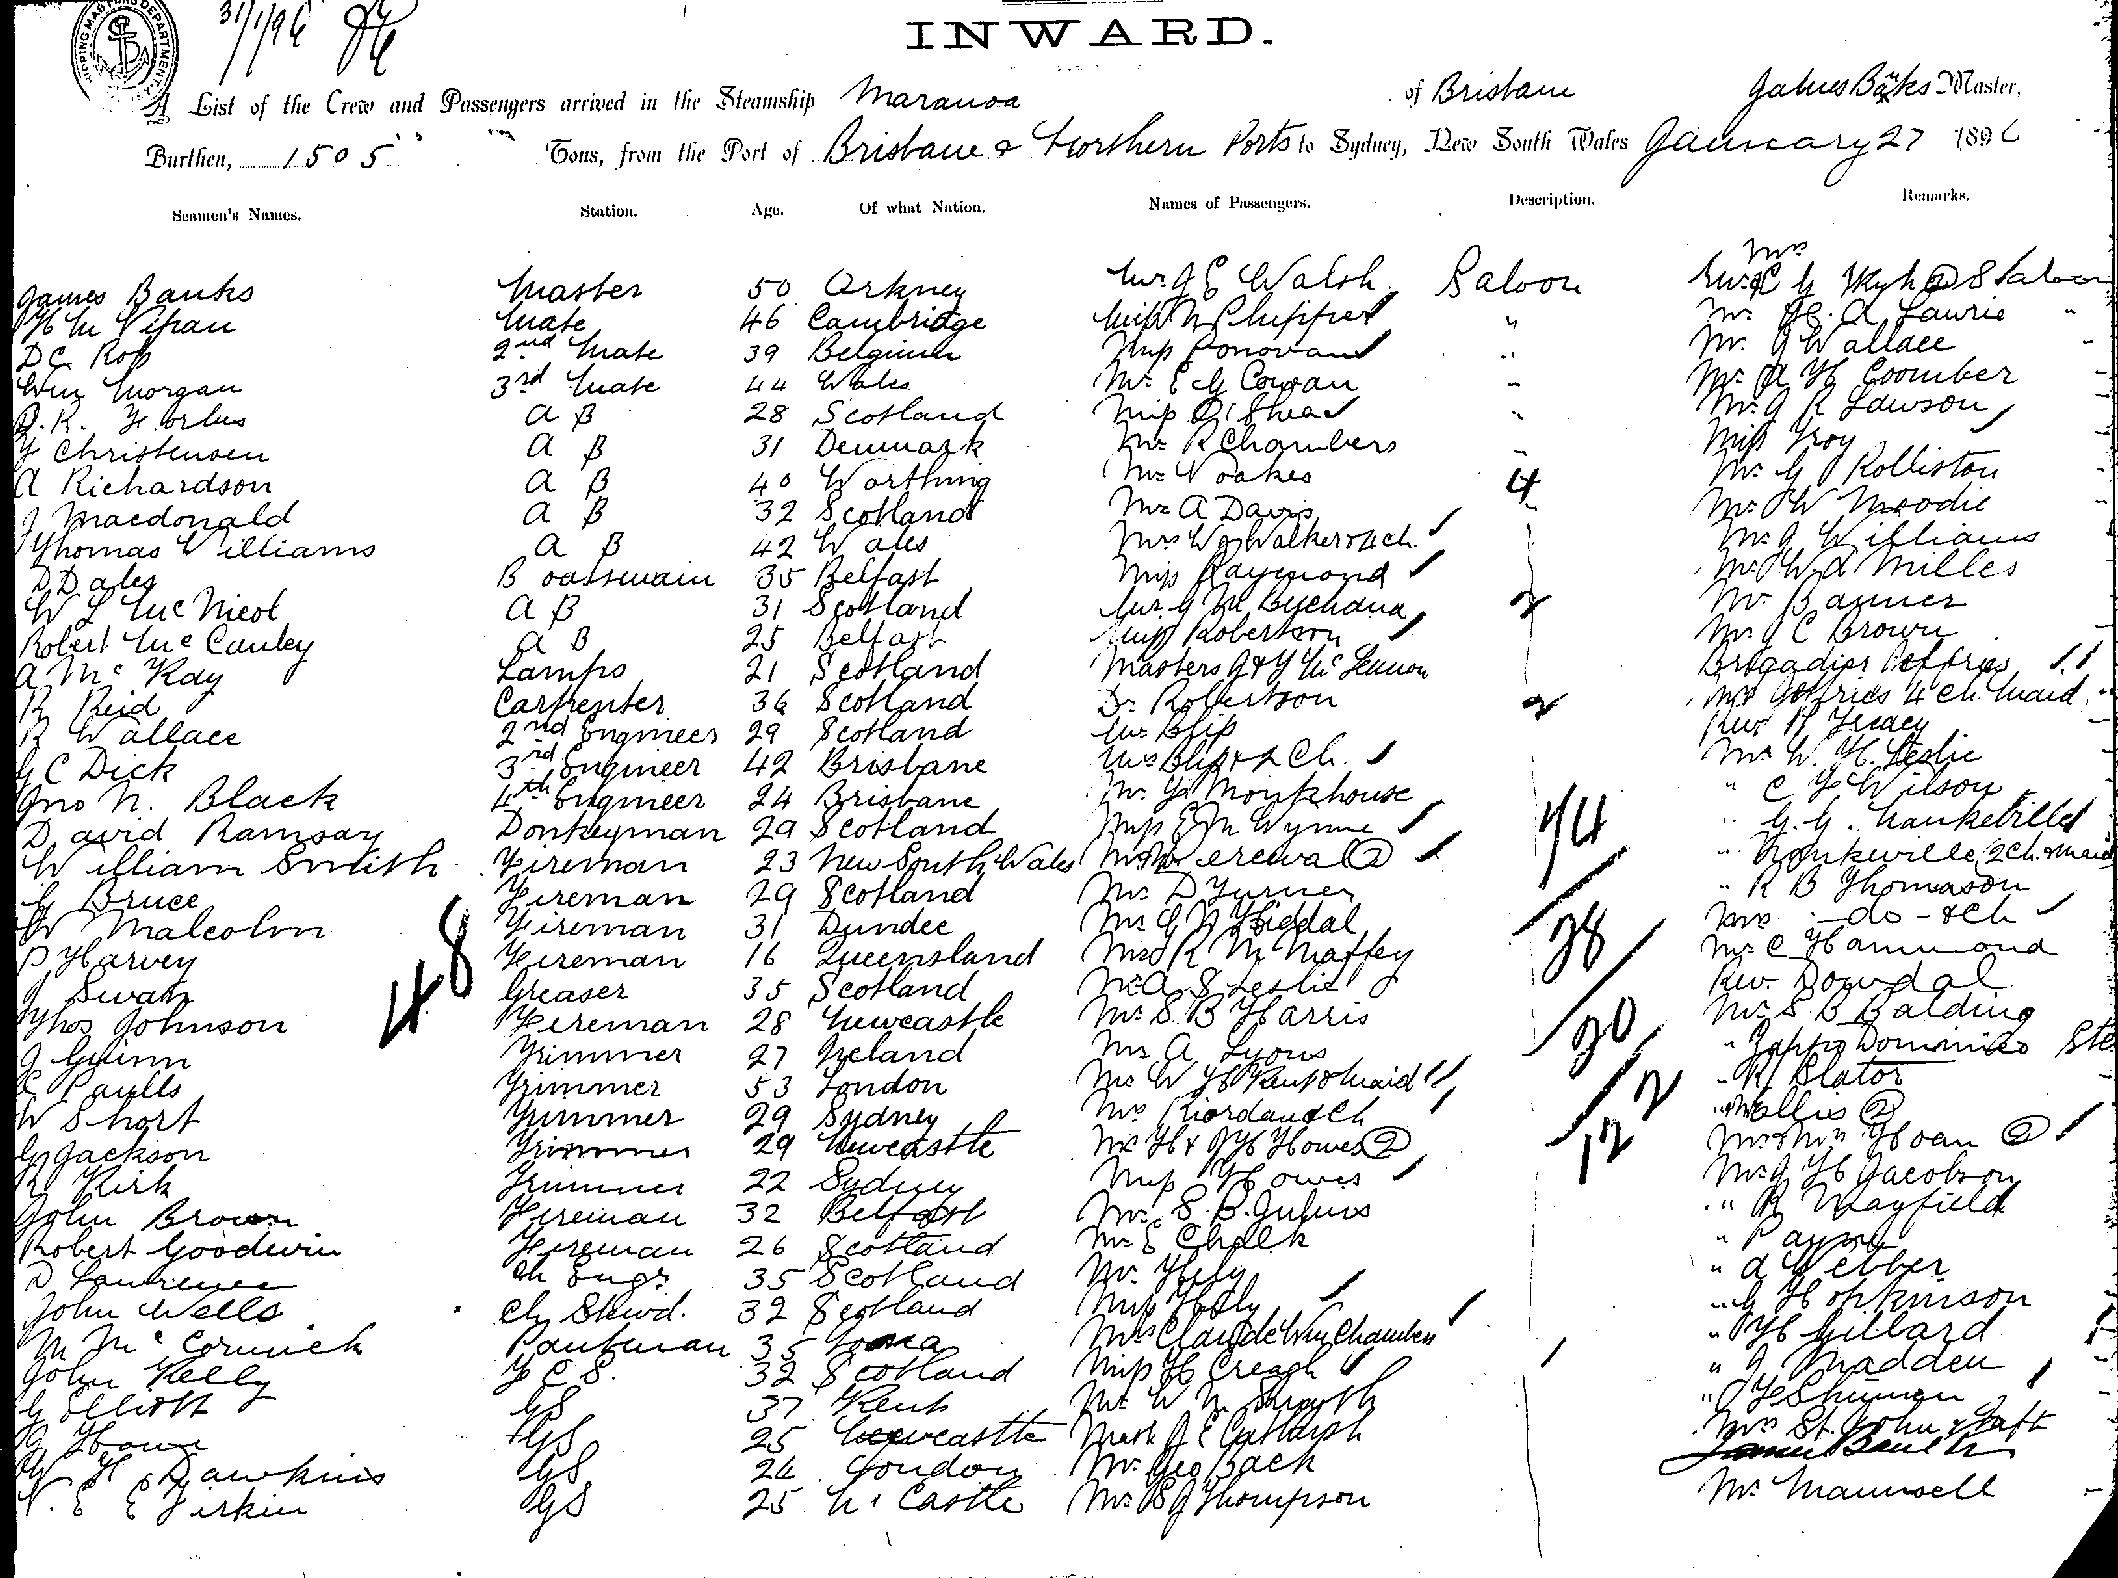 SHIPPING MASTERS DEPARTMENT
31/1/96
INWARD.
A List of the Crew and Passengers arrived in the Steamship Maranoa of Brisbane James Banks Master,
Burthen, 1505 Tons, from the Port of Brisbane & Northern Ports to Sydney, New South Wales January 27 1896
Seamen's Names. Station. Age. Of what Nation. Names of Passengers. Description. Remarks.
James Banks Master 50 Orkney Mr J E Walsh Saloon Mrs
Mate 46 Cambridge Miss " Mr A Lawrie "
D C Ross 2nd Mate 39 Belgium Miss Donovan " Mr J Wallace
Wm Morgan 3rd Mate 44 Wales Mr E G Cowan " Mr A H Coomber
A B 28 Scotland Miss O'Shea " Mr J R Lawson
Christensen A B 31 Denmark Mr R Chambers " Miss Troy
A Richardson A B 40 Worthing Mr Voakes 4 Mr G Rolliston
J Macdonald A B 32 Scotland Mr A Davis Mr W Moodie
Thomas Williams A B 42 Wales Mrs Walker & 4 ch. Mr J Williams
D Dales Boatswain 35 Belfast Miss Raymond Mr W A Milles
W L McNicol A B 31 Scotland Mr 2 Mr Banner
Robert McCauley A B 25 Belfast Miss Robertson Mr J C Brown
A McKay Lamps 21 Scotland Masters J & Y McLennon Brigadier Jeffries
R Reid Carpenter 36 Scotland Dr Robertson 2 Mrs Jeffries 4 ch. Maid
R Wallace 2nd Engineer 29 Scotland Mr Rev
G C Dick 3rd Engineer 42 Brisbane Mrs & 2 Ch. Mr W. H. Leslie
Jno N. Black 4th Engineer 24 Brisbane Mr Monkhouse " C Wilson
David Ramsay Donkeyman 29 Scotland Miss E M Wynne 74 " G. G.
William Smith Fireman 23 New South Wales (2) " 2 Ch & Maid
G Bruce Fireman 29 Scotland Mr D Turner " R B Thomason
W Malcolm Fireman 31 Dundee Mr G N 38 Mrs - do - & Ch
P Harvey 48 Fireman 16 Queensland R McMaffey Mr C Hammond
J Swan Greaser 35 Scotland Mr A S Leslie Rev. Dowdal
Thos Johnson Fireman 28 Newcastle Mr S. B Harris Mr S B Balding
J Guinn Trimmer 27 Ireland Mr A Lyons 30 " Dominico
Paulls Trimmer 53 London Mr W H Kent & Maid " R Slator
W Short Trimmer 29 Sydney Mrs Riordan & Ch " Wallis (2)
G Jackson Trimmer 29 Newcastle Mr H & J H Howes (2) 122 Mr & Mrs Hoan (2)
R Kirk Trimmer 22 Sydney Miss Howes Mr J H Jacobson
John Brown Fireman 32 Belfast Mr S. B. Julius " R Mayfield
Robert Goodwin Fireman 26 Scotland Mr E Chalk " Payne
D Lawrence Ch Engr 35 Scotland Mr " A Webber
John Wells Ch Stwd. 32 Scotland Miss " G Hopkinson
M McCormick Pantryman 35 Iona Mrs Claude Wm Chambers " H Gillard
John Kelly F C S. 32 Scotland Miss H Creagh " J Madden
G Elliott GS 37 Kent Mr W N Smyth "
GS 25 Newcastle J E Mrs St. John &
W H Dawkins GS 24 London Mr Geo Back James Banks
E Firkin GS 25 N' Castle Mr B J Thompson Mr Maunsell